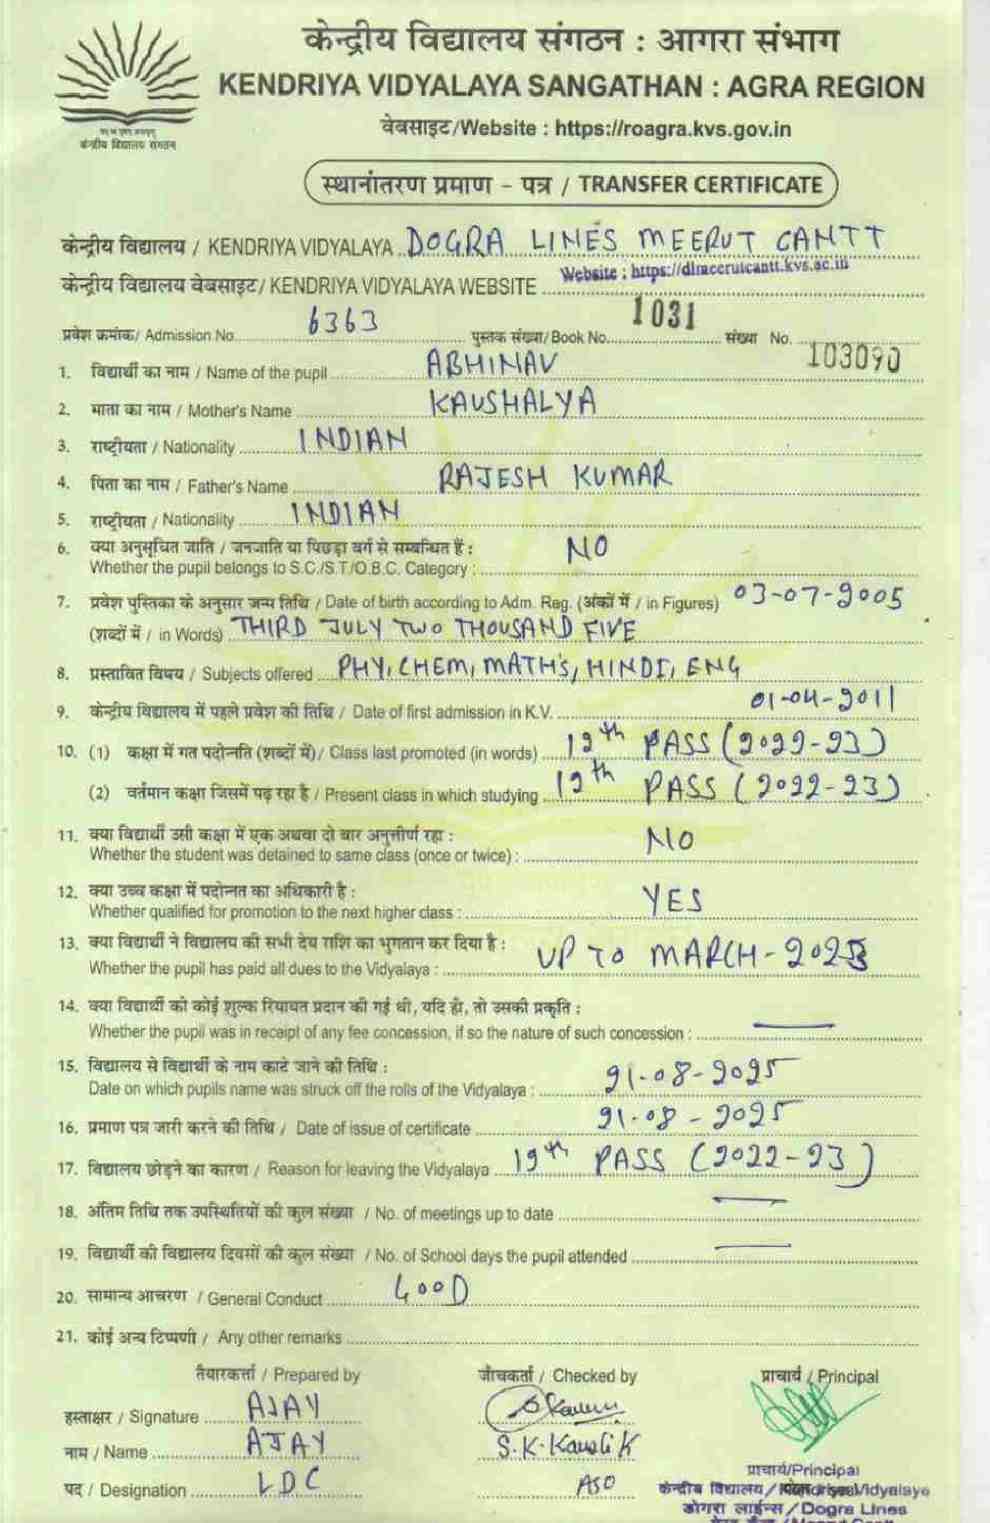 केन्द्रीय विद्यालय संगठन : आगरा संभाग
KENDRIYA VIDYALAYA SANGATHAN : AGRA REGION
वेबसाइट/Website : https://roagra.kvs.gov.in
केन्द्रीय विद्यालय संगठन
स्थानांतरण प्रमाण - पत्र / TRANSFER CERTIFICATE
केन्द्रीय विद्यालय / KENDRIYA VIDYALAYA DOGRA LINES MEERUT CANTT
केन्द्रीय विद्यालय वेबसाइट/ KENDRIYA VIDYALAYA WEBSITE Website : https://dlmeerutcantt.kvs.ac.in
प्रवेश क्रमांक/ Admission No. 6363 पुस्तक संख्या/ Book No. 1031 संख्या No. 103090
1. विद्यार्थी का नाम / Name of the pupil ABHINAV
2. माता का नाम / Mother's Name KAUSHALYA
3. राष्ट्रीयता / Nationality INDIAN
4. पिता का नाम / Father's Name RAJESH KUMAR
5. राष्ट्रीयता / Nationality INDIAN
6. क्या अनुसूचित जाति / जनजाति या पिछड़ा वर्ग से सम्बन्धित हैं : NO
Whether the pupil belongs to S.C./S.T./O.B.C. Category :
7. प्रवेश पुस्तिका के अनुसार जन्म तिथि / Date of birth according to Adm. Reg. (अंकों में / in Figures) 03-07-2005
(शब्दों में / in Words) THIRD JULY TWO THOUSAND FIVE
8. प्रस्तावित विषय / Subjects offered PHY, CHEM, MATH's, HINDI, ENG
9. केन्द्रीय विद्यालय में पहले प्रवेश की तिथि / Date of first admission in K.V. 01-04-2011
10. (1) कक्षा में गत पदोन्नति (शब्दों में)/ Class last promoted (in words) 12th PASS (2022-23)
(2) वर्तमान कक्षा जिसमें पढ़ रहा है / Present class in which studying 12th PASS (2022-23)
11. क्या विद्यार्थी उसी कक्षा में एक अथवा दो बार अनुत्तीर्ण रहा : NO
Whether the student was detained to same class (once or twice) :
12. क्या उच्च कक्षा में पदोन्नत का अधिकारी है : YES
Whether qualified for promotion to the next higher class :
13. क्या विद्यार्थी ने विद्यालय की सभी देय राशि का भुगतान कर दिया है : UP TO MARCH-2023
Whether the pupil has paid all dues to the Vidyalaya :
14. क्या विद्यार्थी को कोई शुल्क रियायत प्रदान की गई थी, यदि हो, तो उसकी प्रकृति :
Whether the pupil was in receipt of any fee concession, if so the nature of such concession :
15. विद्यालय से विद्यार्थी के नाम काटे जाने की तिथि : 21-08-2025
Date on which pupils name was struck off the rolls of the Vidyalaya :
16. प्रमाण पत्र जारी करने की तिथि / Date of issue of certificate 21-08-2025
17. विद्यालय छोड़ने का कारण / Reason for leaving the Vidyalaya 12th PASS (2022-23)
18. अंतिम तिथि तक उपस्थितियों की कुल संख्या / No. of meetings up to date
19. विद्यार्थी की विद्यालय दिवसों की कुल संख्या / No. of School days the pupil attended
20. सामान्य आचरण / General Conduct GOOD
21. कोई अन्य टिप्पणी / Any other remarks
तैयारकर्त्ता / Prepared by जाँचकर्ता / Checked by प्राचार्य / Principal
हस्ताक्षर / Signature AJAY
नाम / Name AJAY S.K. Kaushik
पद / Designation LDC ASO
प्राचार्य/Principal
केन्द्रीय विद्यालय/Kendriya Vidyalaya
डोगरा लाईन्स/Dogra Lines